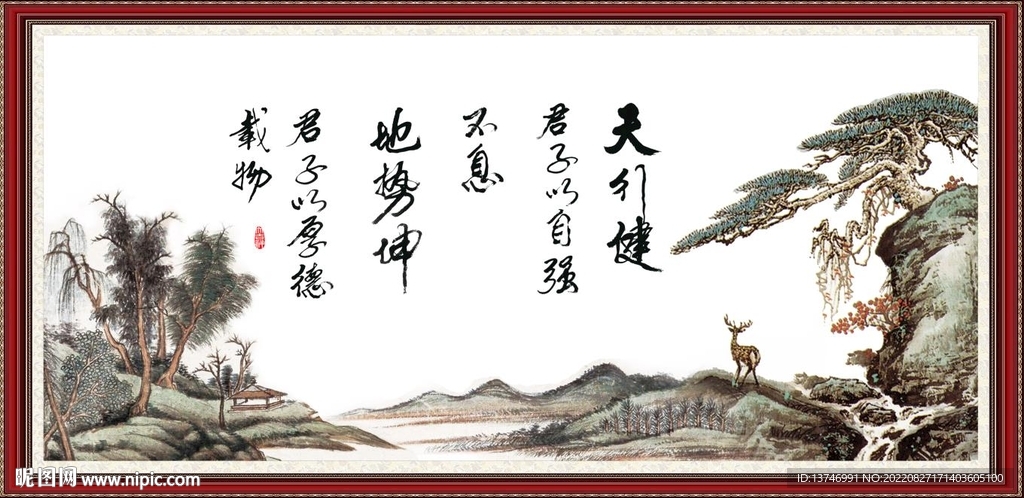 天行健
君子以自强
不息
地势坤
君子以厚德
载物
昵图网 www.nipic.com
ID:13746991 NO:20220827171403605100